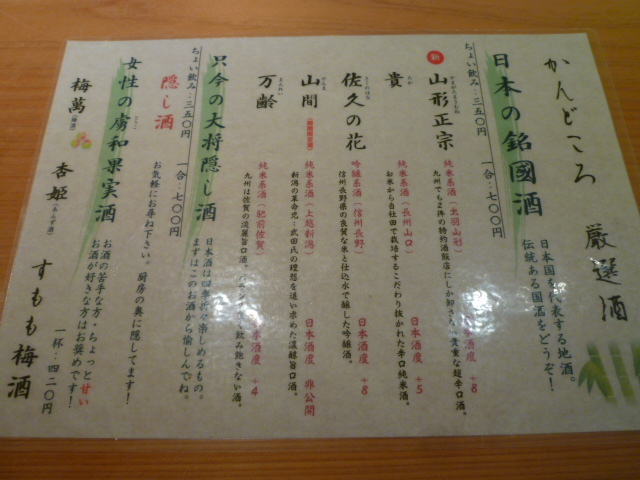 かんどころ 厳選酒
日本の銘國酒
日本国を代表する地酒。
伝統ある国酒をどうぞ！
ちょい飲み：三五〇円 一合：七〇〇円
新
山形正宗
やまがたまさむね
純米系酒（出羽山形） 日本酒度 +8
九州でも2件の特約酒飯店にしか卸さない貴重な超辛口酒。
貴
たか
純米系酒（長州山口） 日本酒度 +5
お米から自社田で栽培するこだわり抜かれた辛口純米酒。
佐久の花
さくのはな
吟醸系酒（信州長野） 日本酒度 +8
信州長野県の良質な米と仕込水で醸した吟醸酒。
山間
やんま
純米系酒（上越新潟） 日本酒度 非公開
新潟の革命児：武田氏の理想を追い求めた濃醇旨口酒。
万齢
まんれい
純米系酒（肥前佐賀） 日本酒度 +4
九州は佐賀の淡麗旨口酒。
飲み飽きない酒。
只今の大将隠し酒
日本酒は四季折々楽しめるもの。
まずはこのお酒から愉しんでね。
ちょい飲み：三五〇円 一合：七〇〇円
隠し酒
お気軽にお尋ね下さい。厨房の奥に隠してます！
女性の虜和果実酒
とりこ
お酒の苦手な方・ちょっと甘い
お酒が好きな方はお奨めです！
一杯：四二〇円
梅萬（梅酒） 杏姫（あんず酒） すもも梅酒